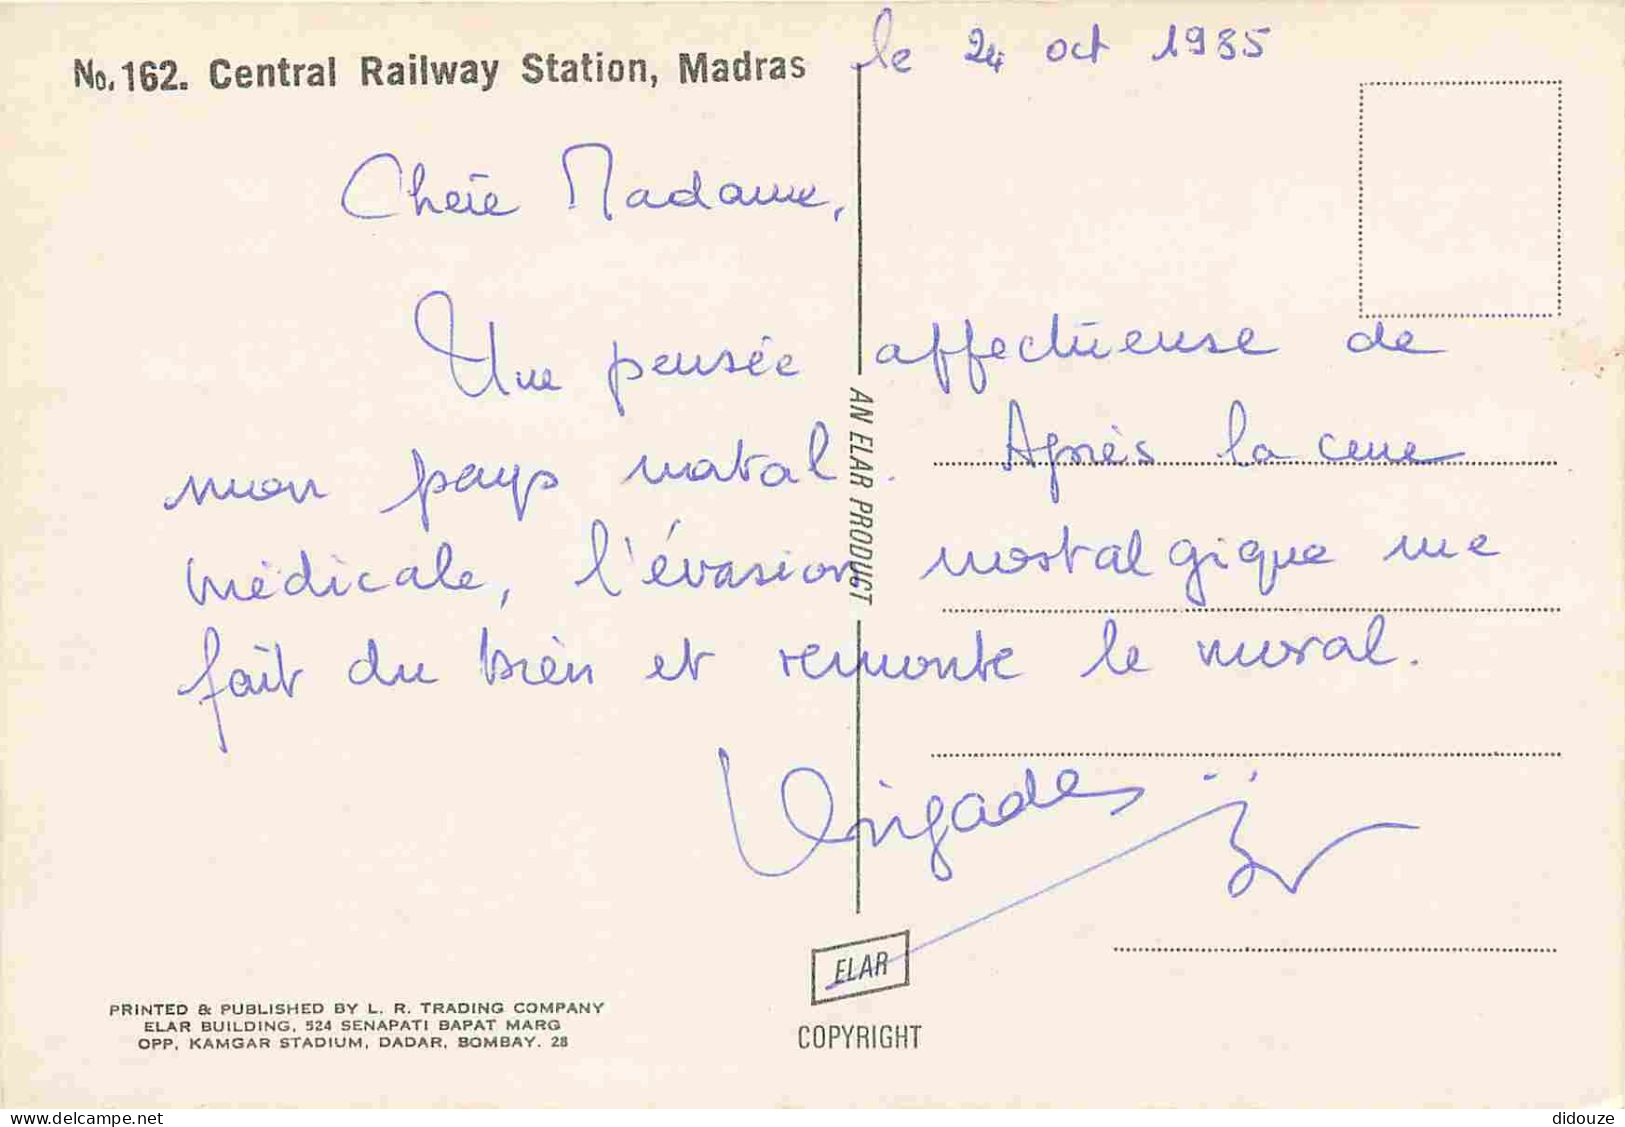 No. 162. Central Railway Station, Madras
le 24 oct 1985
Chère Madame,
Une pensée affectueuse de
mon pays natal. Après la cure
médicale, l'évasion nostalgique me
fait du bien et remonte le moral.
AN ELAR PRODUCT
ELAR
COPYRIGHT
PRINTED & PUBLISHED BY L. R. TRADING COMPANY
ELAR BUILDING, 524 SENAPATI BAPAT MARG
OPP. KAMGAR STADIUM, DADAR, BOMBAY. 28
https://www.delcampe.net
didouze